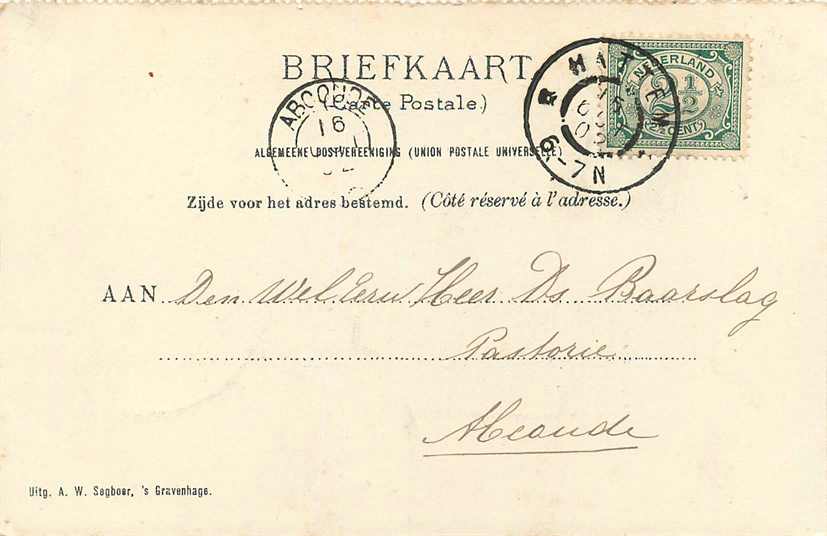 BRIEFKAART
(Carte Postale.)
ALGEMEENE POSTVEREENIGING (UNION POSTALE UNIVERSELLE)
Zijde voor het adres bestemd. (Côté réservé à l'adresse.)
NEDERLAND
2½
(2½ CENT)
HATTEM
6-7N
ABCOUDE
16
AAN Den Wel.Eerw Heer Ds. Baarslag
Pastorie
Abcoude
Uitg. A. W. Segboer, 's Gravenhage.